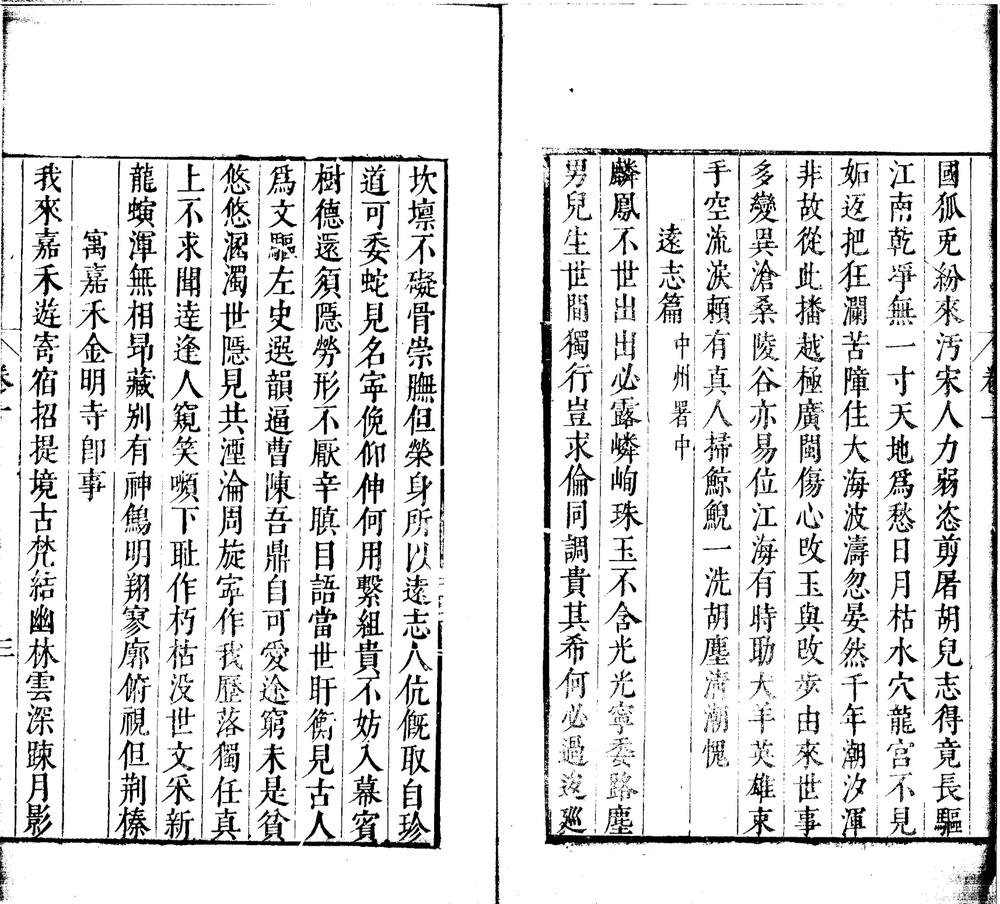 國狐兎紛來汚宋人力弱恣剪屠胡兒志得竟長驅
江南乾凈無一寸天地爲愁日月枯水穴龍宮不見
妬返把狂瀾苦障住大海波濤忽晏然千年潮汐渾
非故從此播越極廣閩傷心攺玉與攺步由來世事
多變異滄桑陵谷亦易位江海有時助犬羊英雄束
手空流淚頼有真人掃鯨鯢一洗胡塵淸潮愧
遠志篇 中州署中
麟鳳不世出出必露嶙峋珠玉不含光光寧委路塵
男兒生世間獨行豈求倫同調貴其希何必過逡廵
坎壈不礙骨崇膴但榮身所以遠志人伉慨取自珍
道可委蛇見名寧俛仰伸何用繫組貴不妨入幕賓
樹德還須隱勞形不厭辛瞋目語當世盱衡見古人
爲文驅左史選韻逼曹陳吾鼎自可愛途窮未是貧
悠悠溷濁世隱見共湮淪周旋寧作我歷落獨任真
上不求聞達逢人窺笑嚬下耻作朽枯没世文采新
龍螾渾無相昻藏别有神鴆明翔寥廓俯視但荆榛
寓嘉禾金明寺卽事
我來嘉禾遊寄宿招提境古梵結幽林雲深踈月影
卷十